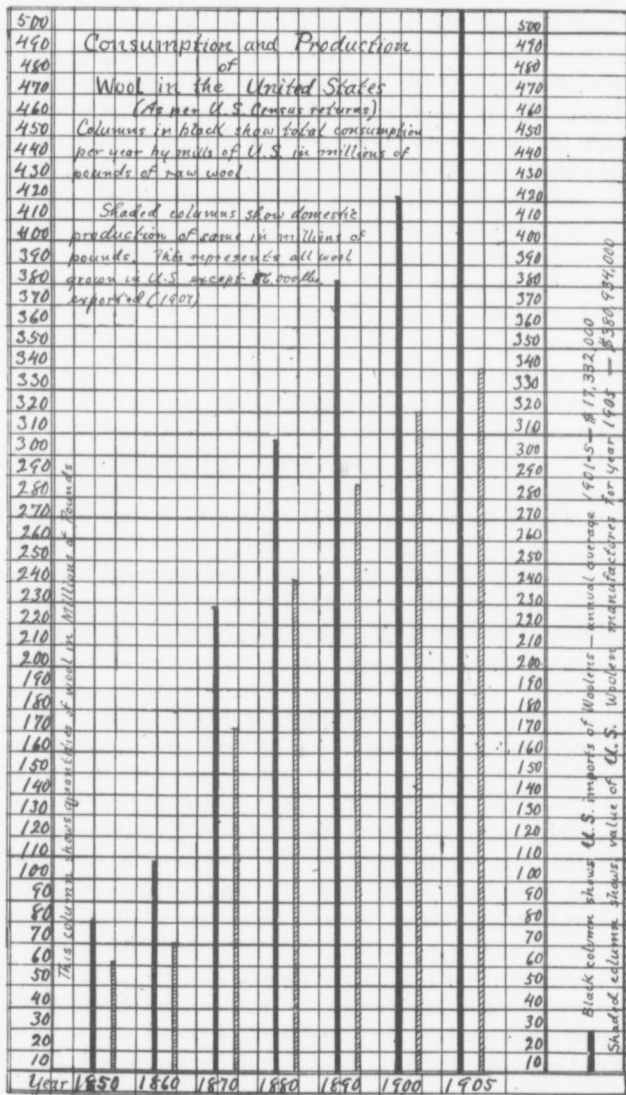 Consumption and Production
of
Wool in the United States
(As per U.S. Census returns)
Columns in black show total consumption
per year by mills of U.S. in millions of
pounds of raw wool.
Shaded columns show domestic
production of same in millions of
pounds. This represents all wool
grown in U.S. except 86,000 lbs.
exported (1907)
500
490
480
470
460
450
440
430
420
410
400
390
380
370
360
350
340
330
320
310
300
290
280
270
260
250
240
230
220
210
200
190
180
170
160
150
140
130
120
110
100
90
80
70
60
50
40
30
20
10
This column shows quantities of wool in Millions of Pounds
500
490
480
470
460
450
440
430
420
410
400
390
380
370
360
350
340
330
320
310
300
290
280
270
260
250
240
230
220
210
200
190
180
170
160
150
140
130
120
110
100
90
80
70
60
50
40
30
20
10
Black column shows U.S. imports of Woolens—annual average 1901-5—$17,332,000
Shaded column shows value of U.S. Woolen manufactures for year 1905 — $380,934,000
Year 1850 1860 1870 1880 1890 1900 1905